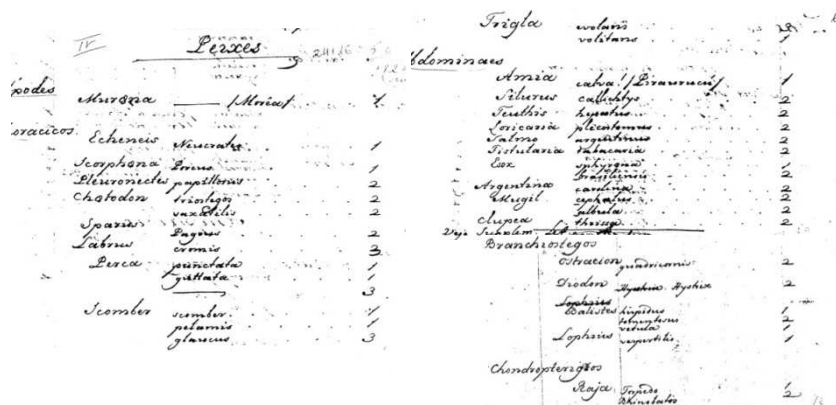 IV
Peixes
Apodes
Muræna —— /Morêa/ 1
oracicos
Echeneis Neucrates 1
Scorphæna Porcus 1
Pleuronectes papillonis 2
Chætodon triostegos 2
saxatilis 2
Sparus Pagrus 2
Labrus cromis 3
Perca punctata 1
guttata 1
—— 3
Scomber scomber 1
pelamis 1
glaucus 3
Trigla
volitans 1
bdominaes
Amia calva! /Piraurucú/ 1
Silurus callichtys 2
Teuthis hepatus 2
Loricaria 2
Salmo argentinus 2
Fistularia tabacaria 2
Esox sphyræna 1
brasiliensis 2
Argentina carolina 2
Mugil cephalus 2
albula 2
Clupea thrissa 2
Veja
Branchiostegos
Ostracion quadricornis 2
Diodon Hystrix Hystrix 2
Lophius
Balistes hispidus 1
tomentosus 2
vetula 1
Lophius vespertilio 1
Chondropterigios
Raja Torpedo 1
Rhinobatos 2